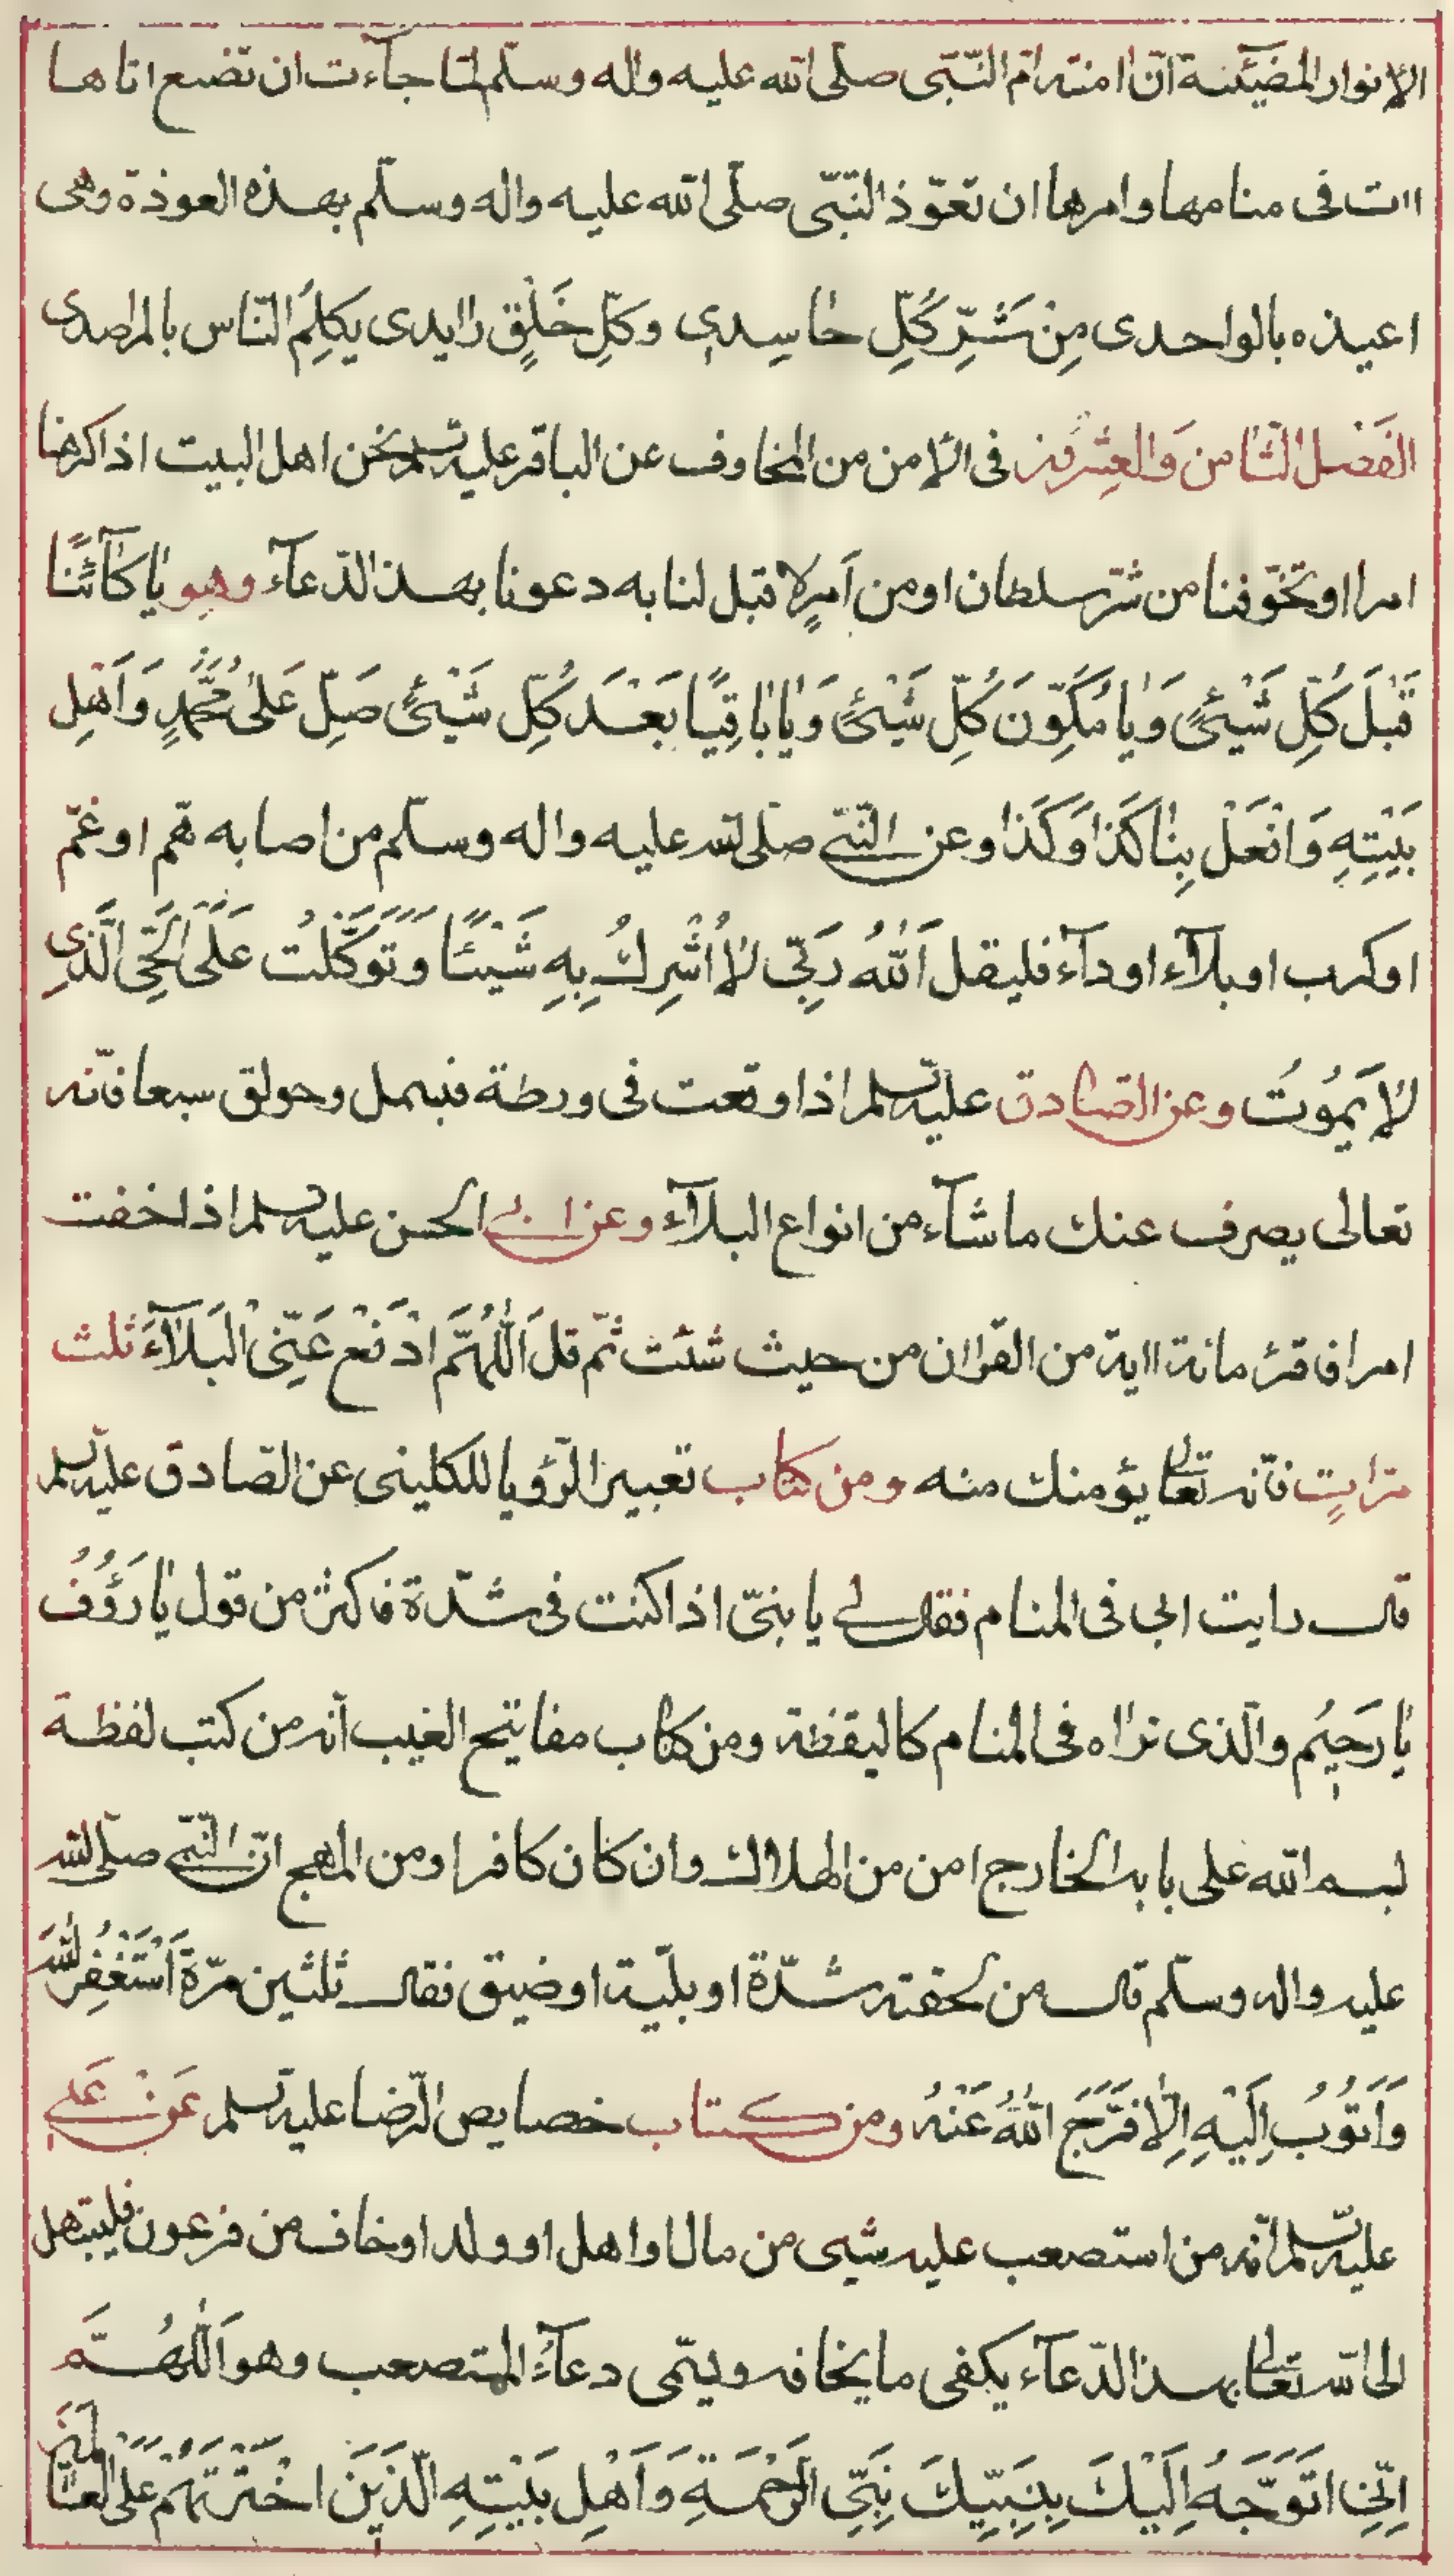 الانوار المضيئة انّ امنة امّ النّبى صلّى الله عليه واله وسلّم لمّا جآءت ان تضع اتاها
اات فى منامها وامرها ان تعوّذ النّبّى صلّى الله عليه واله وسلّم بهذه العوذة وهى
اعيذه بالواحدى مِنْ شَرِّ كُلِّ حٰاسِدىٍ وكلِّ خَلْقٍ رٰايدى يكلِمُ النّاس بالمراصدى
الفَصْل الثّامن وَالعِشْرون فى الامن من المخاوف عن الباقر عليه السّلم نحن اهل البيت اذا كرهنا
امرا او تخوّفنا من شرّ سلطان او من اَمرٍ لا قبل لنا به دعونا بهذا الدّعآء وهو يٰا كآئنًا
قَبْلَ كُلِّ شَيْئٍ وَيٰا مُكَوِّنَ كُلِّ شَيْئٍ وَيٰا بٰاقيًا بَعْدَ كُلِّ شَيْئٍ صَلِّ عَلىٰ مُحَمَّدٍ وَاَهْلِ
بَيْتِهِ وَافْعَلْ بِنٰا كَذٰا وَكَذٰا وعن النّبى صلّى الله عليه واله وسلّم من اصابه همّ او غمّ
او كرب او بلآء او دآء فليقل اَللّٰهُ رَبّى لاٰ اُشْرِكُ بِهِ شَيْئًا وَتَوَكَّلْتُ عَلَى الْحَىِّ الَّذى
لاٰ يَمُوُتُ وعن الصّادق عليه السّلم اذا وقعت فى ورطة فبسمل وحولق سبعا فانّه
تعالى يصرف عنك ما شآء من انواع البلآء وعن ابى الحسن عليه السلم اذا خفت
امرا فاقرئ مائة ااية من القراٰن من حيث شئت ثمّ قل اَللّٰهُمَّ ادْفَعْ عَنِّى الْبَلآءَ ثلث
مرّاتٍ فانّه تعالى يؤمنك منه ومن كتاب تعبير الرّؤيا للكلينى عن الصّادق عليه السّلم
قال رايت ابى فى المنام فقال لى يا بنىّ اذا كنت فى شدّة فاكثر من قول يٰا رَؤُفُ
يٰا رَحيُم والّذى نراٰه فى المنام كاليقظة ومن كتاب مفاتيح الغيب انّه من كتب لفظة
بسم الله على بابه الخارج امن من الهلاك وان كان كافرا ومن المهج انّ النّبى صلّى الله
عليه واله وسلّم قال من لحقته شدّة او بليّة او ضيق فقال ثلثين مرّة اَسْتَغْفِرُ اللّٰهَ
وَاَتُوُبُ اِلَيْهِ اِلاّٰ فَرَّجَ اللّٰهُ عَنْهُ ومن كتاب خصايص الرّضا عليه السّلم عَنْ عَلى
عليه السّلم انّه من استصعب عليه شيى من مال او اهل او ولد او خاف من فرعون فليبتهل
الى الله تعالى بهذا الدّعآء يكفى ما يخافه ويسمّى دعآءُ المستصعب وهو اَللّٰهُمَّ
اِنّى اَتَوَجَّهُ اِلَيْكَ بِنَبِيِّكَ نَبِىِّ الرَّحْمَةِ وَاَهْلِ بَيْتِهِ الَّذينَ اخْتَرْتَهُمْ عَلَى العٰالَمينَ